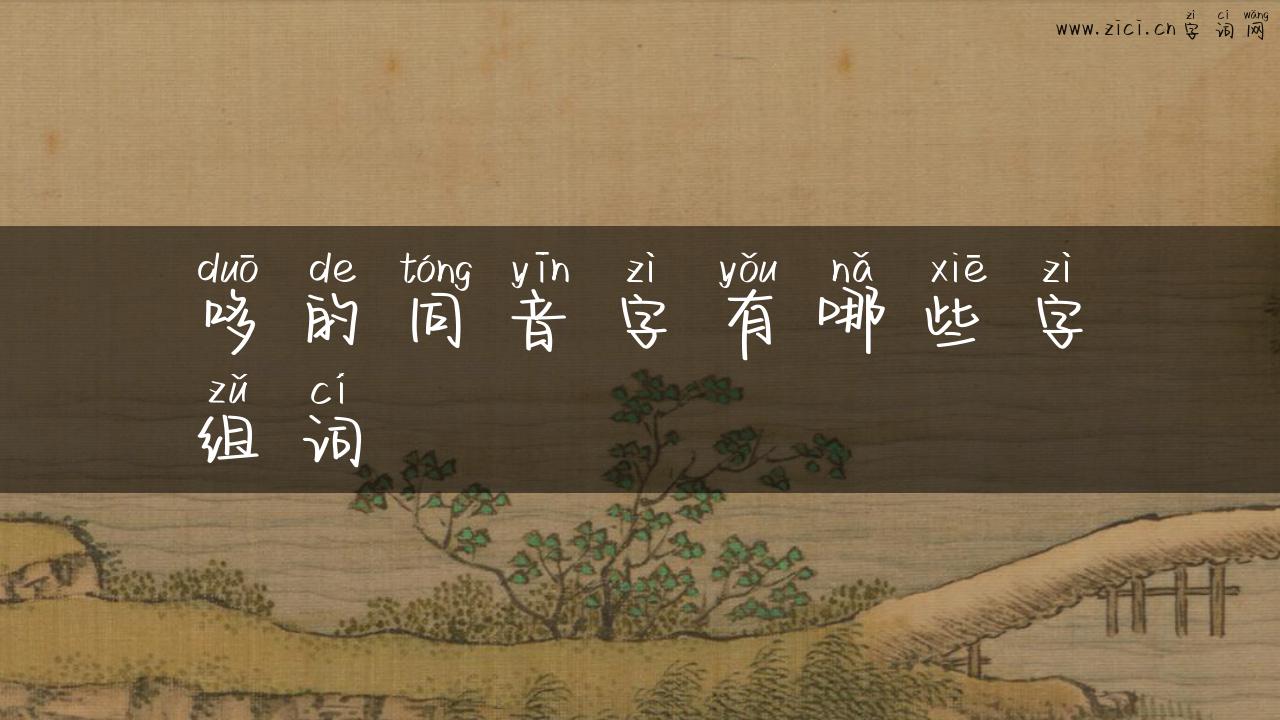 zì cí wǎng
www.zici.cn 字词网
duō de tóng yīn zì yǒu nǎ xiē zì
哆的同音字有哪些字
zǔ cí
组词